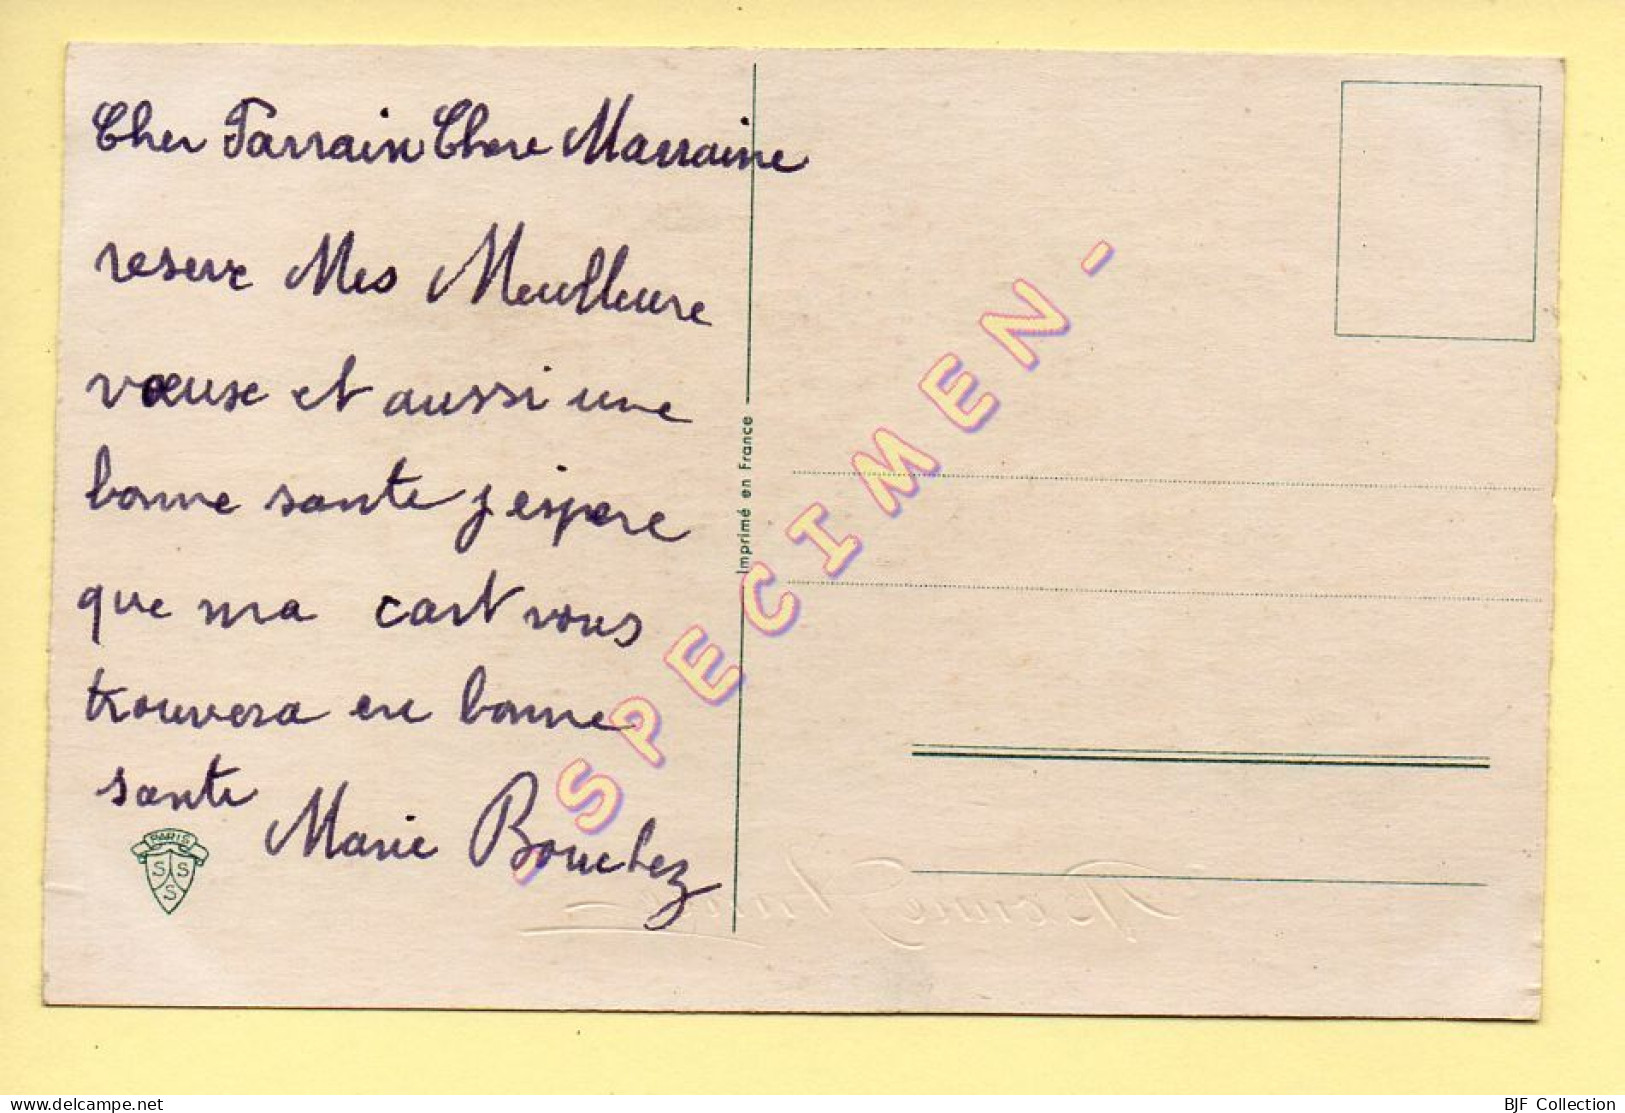 Cher Parrain Chere Marraine
reserve Mes Meulleure
vœuse et aussi une
bonne sante j espere
que ma cart vous
trouvera en bonne
sante
Marie Bouchez
PARIS
S S
S
Imprimé en France
- SPECIMEN -
Bonne Année
BJF Collection